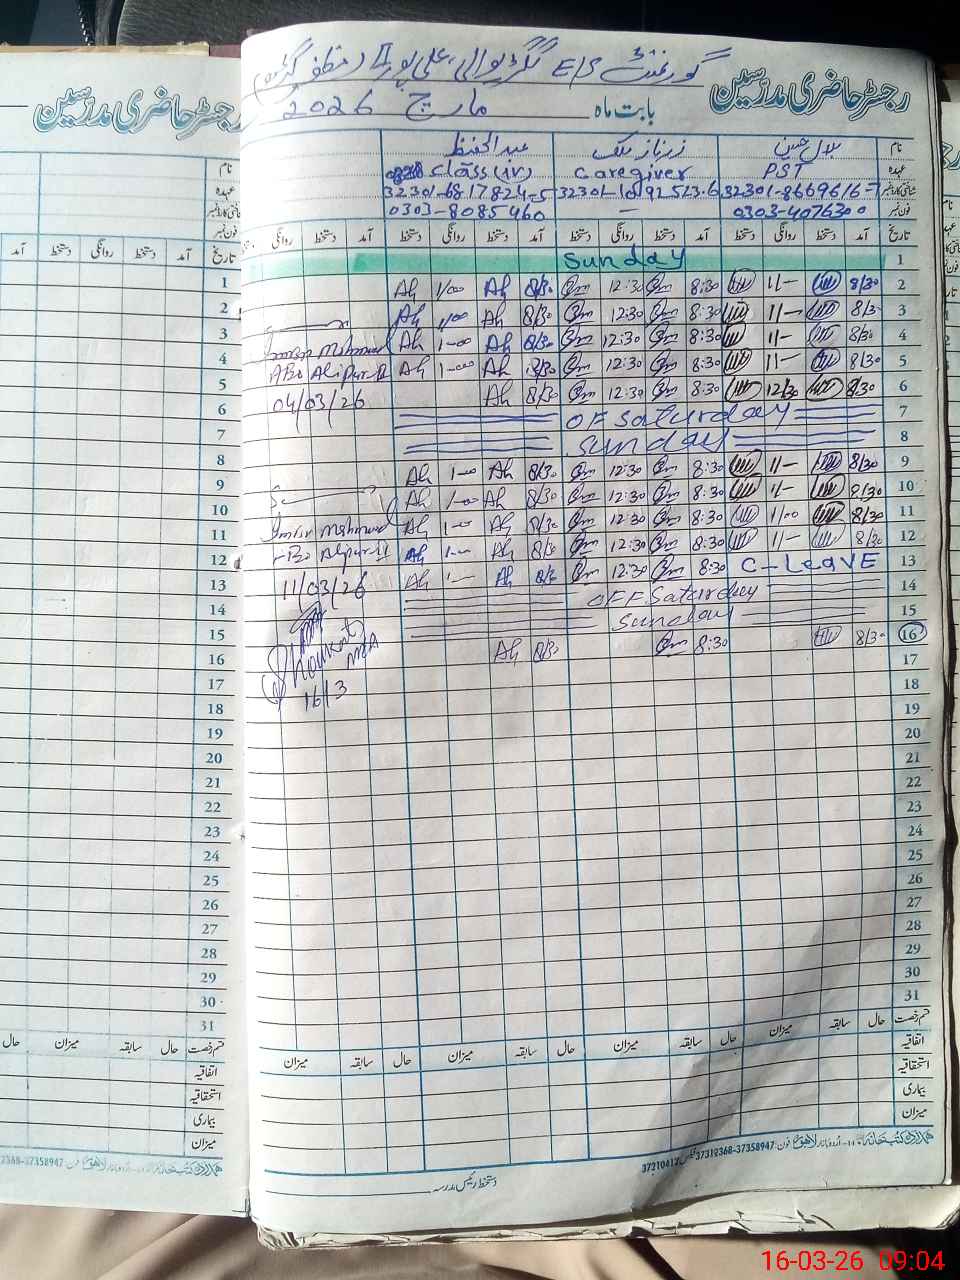 رجسٹر حاضری مدرسین
گورنمنٹ E/S لنگڑیوالی، علی پور II (مظفر گڑھ)
رجسٹر حاضری مدرسین
بابت ماہ مارچ 2026
نام بلال حسین زرناز ملک عبدالحفیظ
عہدہ PST Caregiver Class (iv)
شناختی کارڈ نمبر 32301-8669616-7 32301-1092523-6 32301-6817824-5
فون نمبر 0303-4076300 — 0303-8085460
تاریخ آمد دستخط روانگی دستخط آمد دستخط روانگی دستخط آمد دستخط روانگی دستخط آمد دستخط روانگی
1 Sunday
2 8/30 1/- 8:30 12:30 8/30 Ah 1/00 Ah
3 8/30 1/- 8:30 12:30 8/30 Ah 1/00 Ah
4 8/30 1/- 8:30 12:30 8/30 Ah 1-00 Ah
5 8/30 1/- 8:30 12:30 8/30 Ah 1-00 Ah
6 8/30 12/30 8:30 12:30 8/30 Ah
7 OFF Saturday
8 Sunday
9 8/30 1/- 8:30 12:30 8/30 Ah 1-00 Ah
10 8/30 1/- 8:30 12:30 8/30 Ah 1-00 Ah
11 8/30 1/00 8:30 12:30 8/30 Ah 1-00 Ah
12 8/30 1/- 8:30 12:30 8/30 Ah 1-00 Ah
13 C-Leave 8:30 12:30 8/30 Ah 1- Ah
14 OFF Saturday
15 Sunday
16 8/30 8:30 8/30 Ah
17
18
19
20
21
22
23
24
25
26
27
28
29
30
31
Mehmud
Alipur II
04/03/26
Mehmud
Alipur II
11/03/26
16/3
قسم رخصت حال سابقہ میزان حال سابقہ میزان حال سابقہ میزان حال سابقہ میزان
اتفاقیہ
استحقاقیہ
بیماری
میزان
دستخط رئیس مدرسہ
نام
عہدہ
شناختی کارڈ نمبر
فون نمبر
تاریخ آمد دستخط روانگی دستخط آمد
1
2
3
4
5
6
7
8
9
10
11
12
13
14
15
16
17
18
19
20
21
22
23
24
25
26
27
28
29
30
31
قسم رخصت حال سابقہ میزان حال
اتفاقیہ
استحقاقیہ
بیماری
میزان
16-03-26 09:04